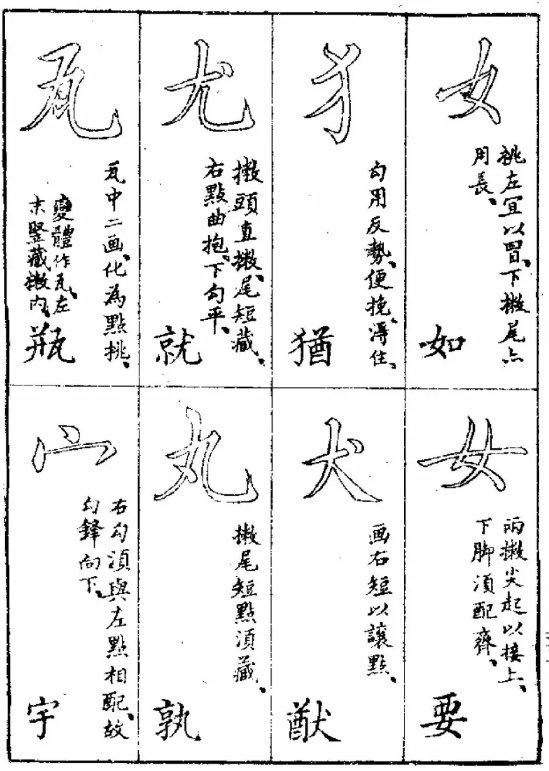 女
挑左宜以冒、下撇尾点
用長、
如
犭
勾用反勢、便挽淂住、
猶
尤
撇頭直撇、尾短藏、
右點曲抱、下勾平、
就
瓦
瓦中二画、化為點挑、
變體作瓦、左
末竪藏撇内、
瓶
女
兩撇尖起以接上、
下脚湏配齊、
要
犬
画右短以讓點、
猷
丸
撇尾短點湏藏、
孰
宀
右勾湏與左點相配、故
勾鋒向下、
宇